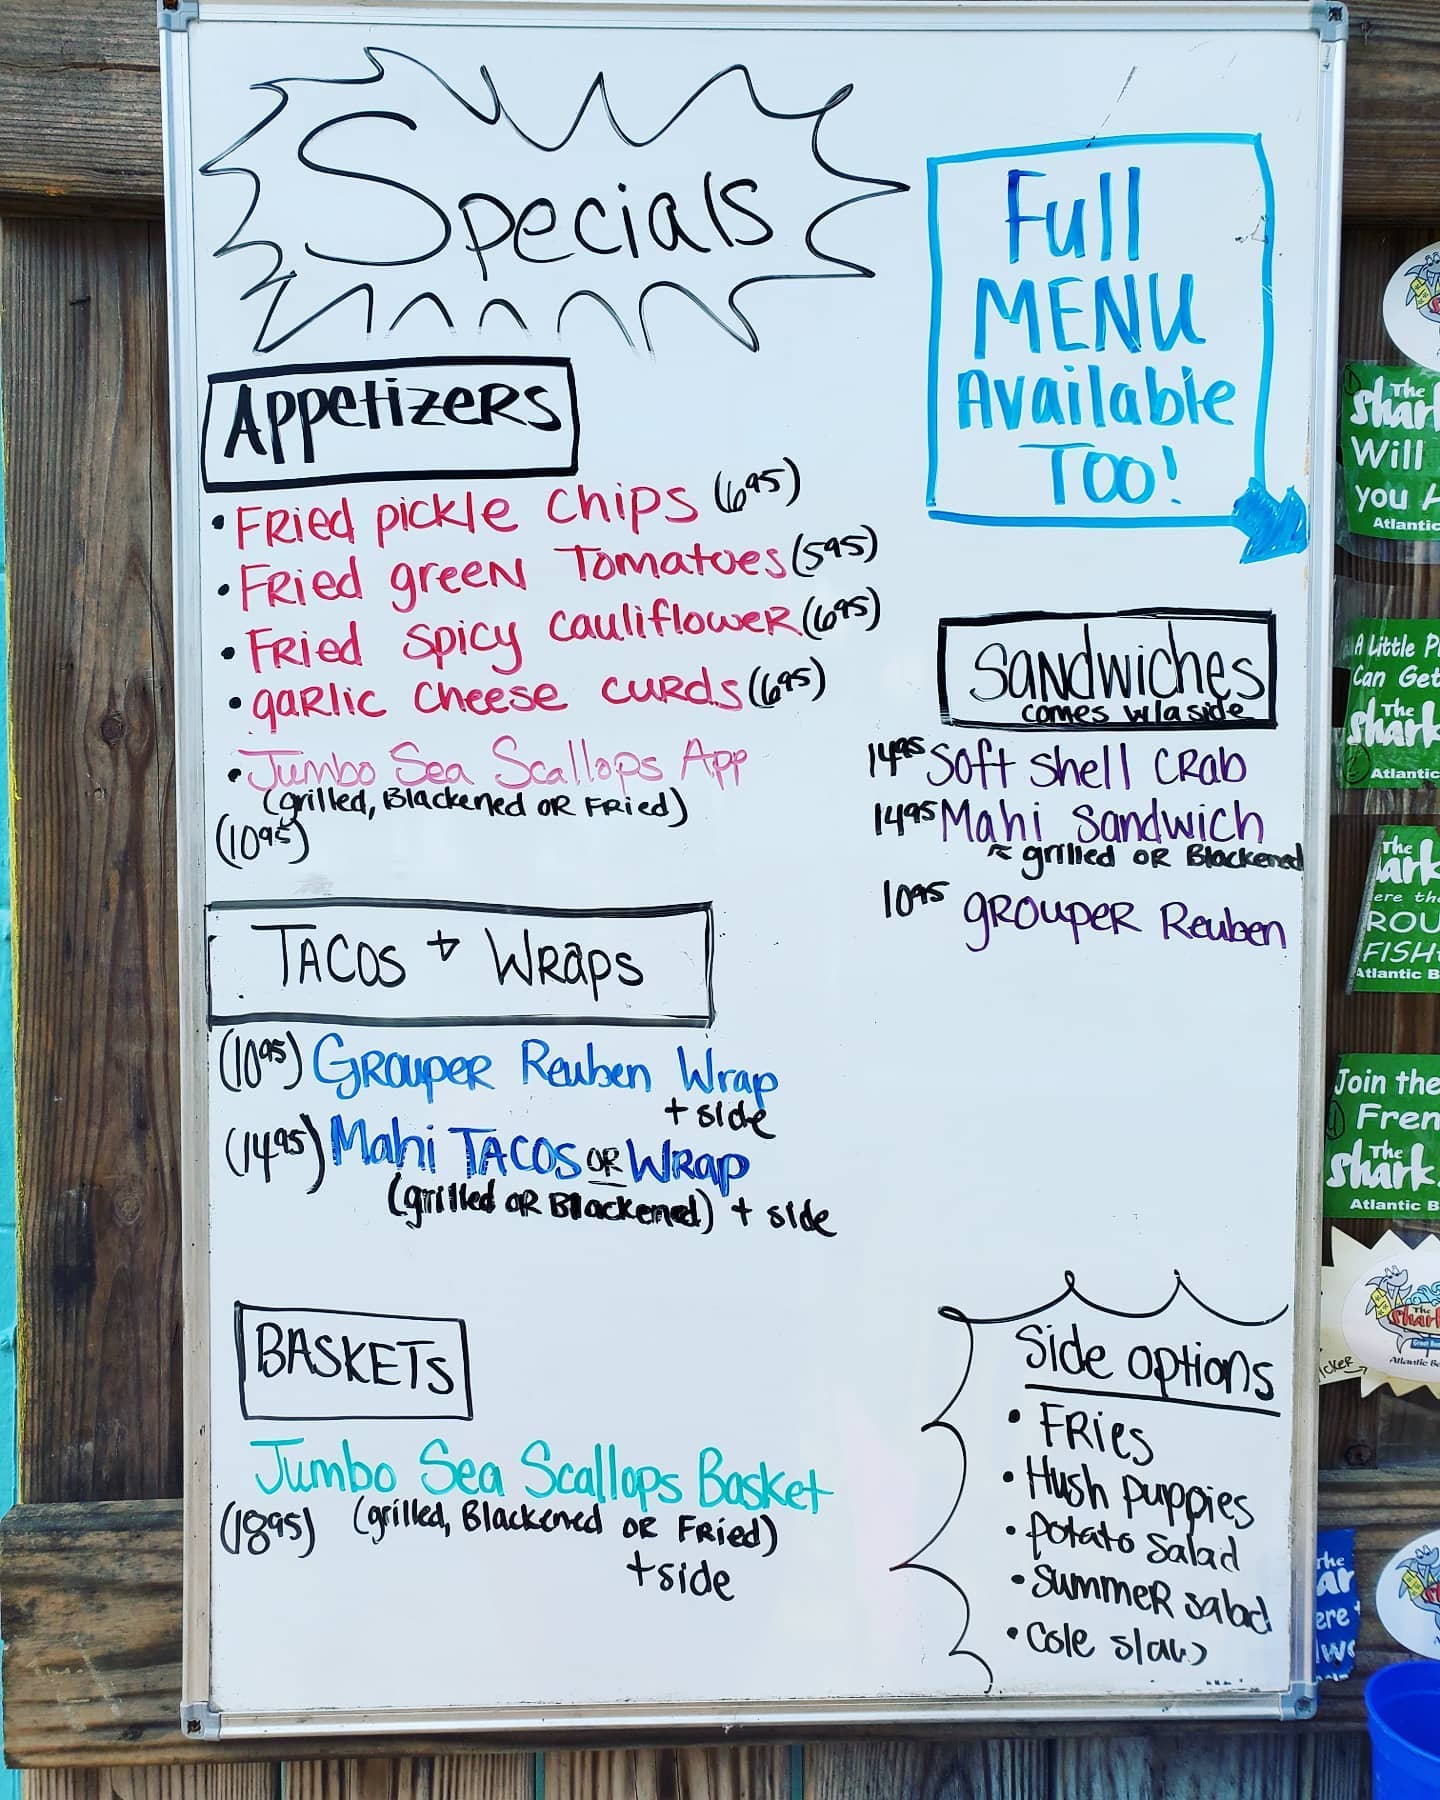 Specials
Full
MENU
Available
TOO!
Appetizers
• Fried pickle chips (6.95)
• Fried green Tomatoes (5.95)
• Fried spicy cauliflower (6.95)
• garlic cheese curds (6.95)
• Jumbo Sea Scallops App
(grilled, Blackened OR Fried)
(10.95)
Sandwiches
comes w/a side
14.95 Soft shell crab
14.95 Mahi Sandwich
grilled OR Blackened
10.95 grouper Reuben
TACOS + Wraps
(10.95) Grouper Reuben Wrap
+ side
(14.95) Mahi TACOS OR Wrap
(grilled OR Blackened) + side
BASKETS
Jumbo Sea Scallops Basket
(18.95) (grilled, Blackened OR Fried)
+ side
Side options
• Fries
• Hush puppies
• Potato salad
• Summer salad
• Cole slaw
The
Shark
Will
you
Atlantic
A Little
Can Get
The
Shark
Atlantic
The
ark
ere the
ROU
FISH
Atlantic B
Join the
Fren
The
Shark
Atlantic B
The
Shark
Atlantic Be